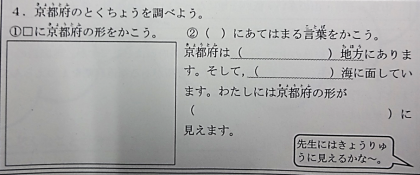 4．京都府のとくちょうを調べよう。
①□に京都府の形をかこう。
②（ ）にあてはまる言葉をかこう。
京都府は（ ）地方にありま
す。そして，（ ）海に面してい
ます。わたしには京都府の形が
（ ）に
見えます。
先生にはきょうりゅ
うに見えるかな～。